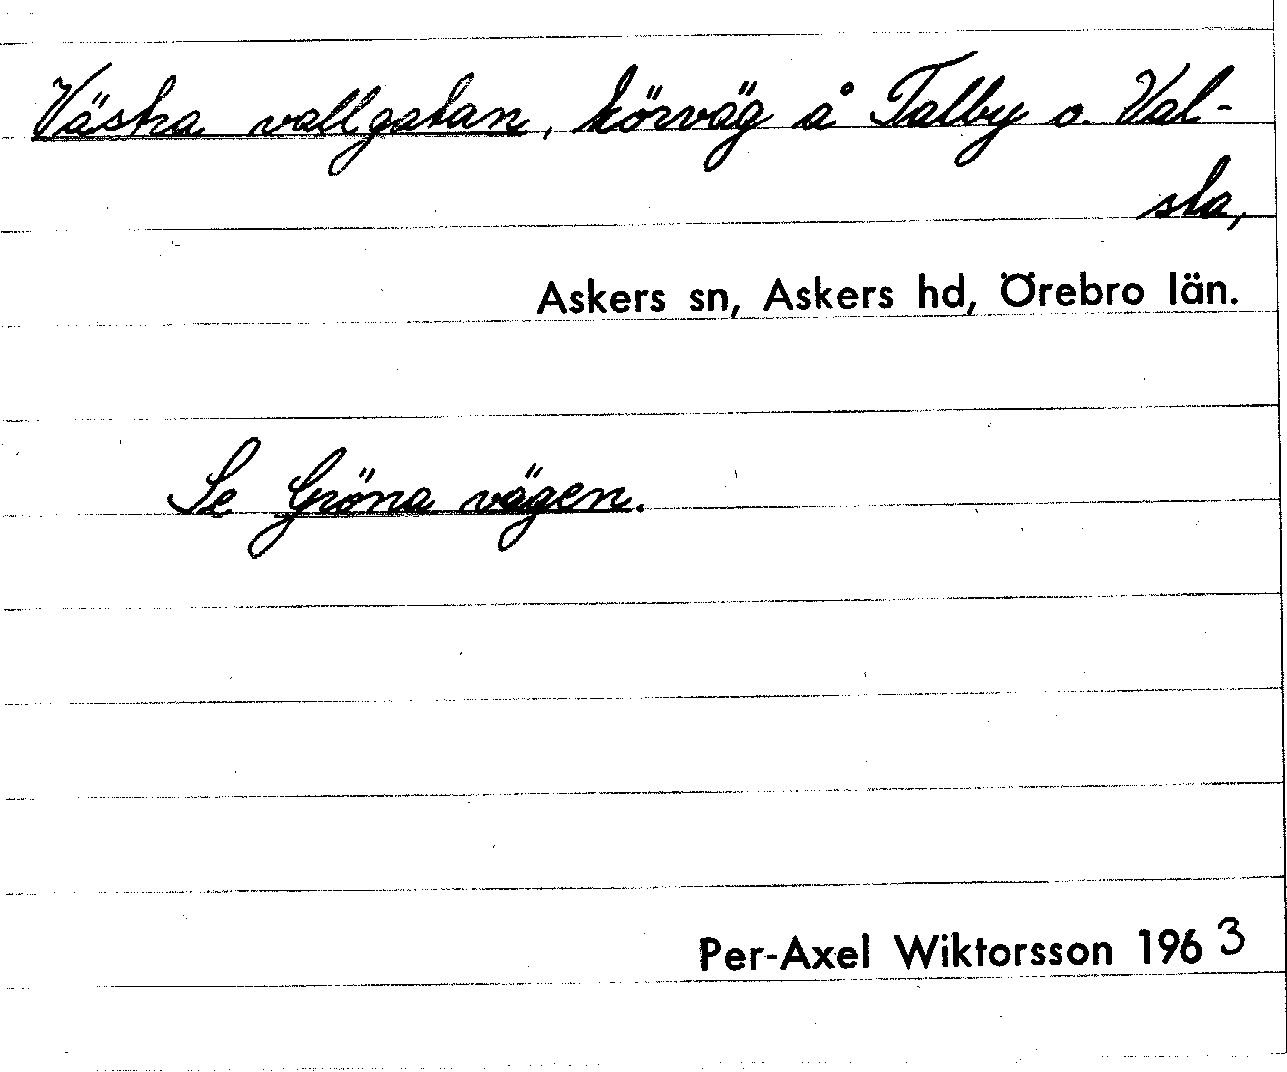 Västra vallgatan, körväg å Talby o. Val-
sta,
Askers sn, Askers hd, Örebro län.
Se Gröna vägen.
Per-Axel Wiktorsson 1963